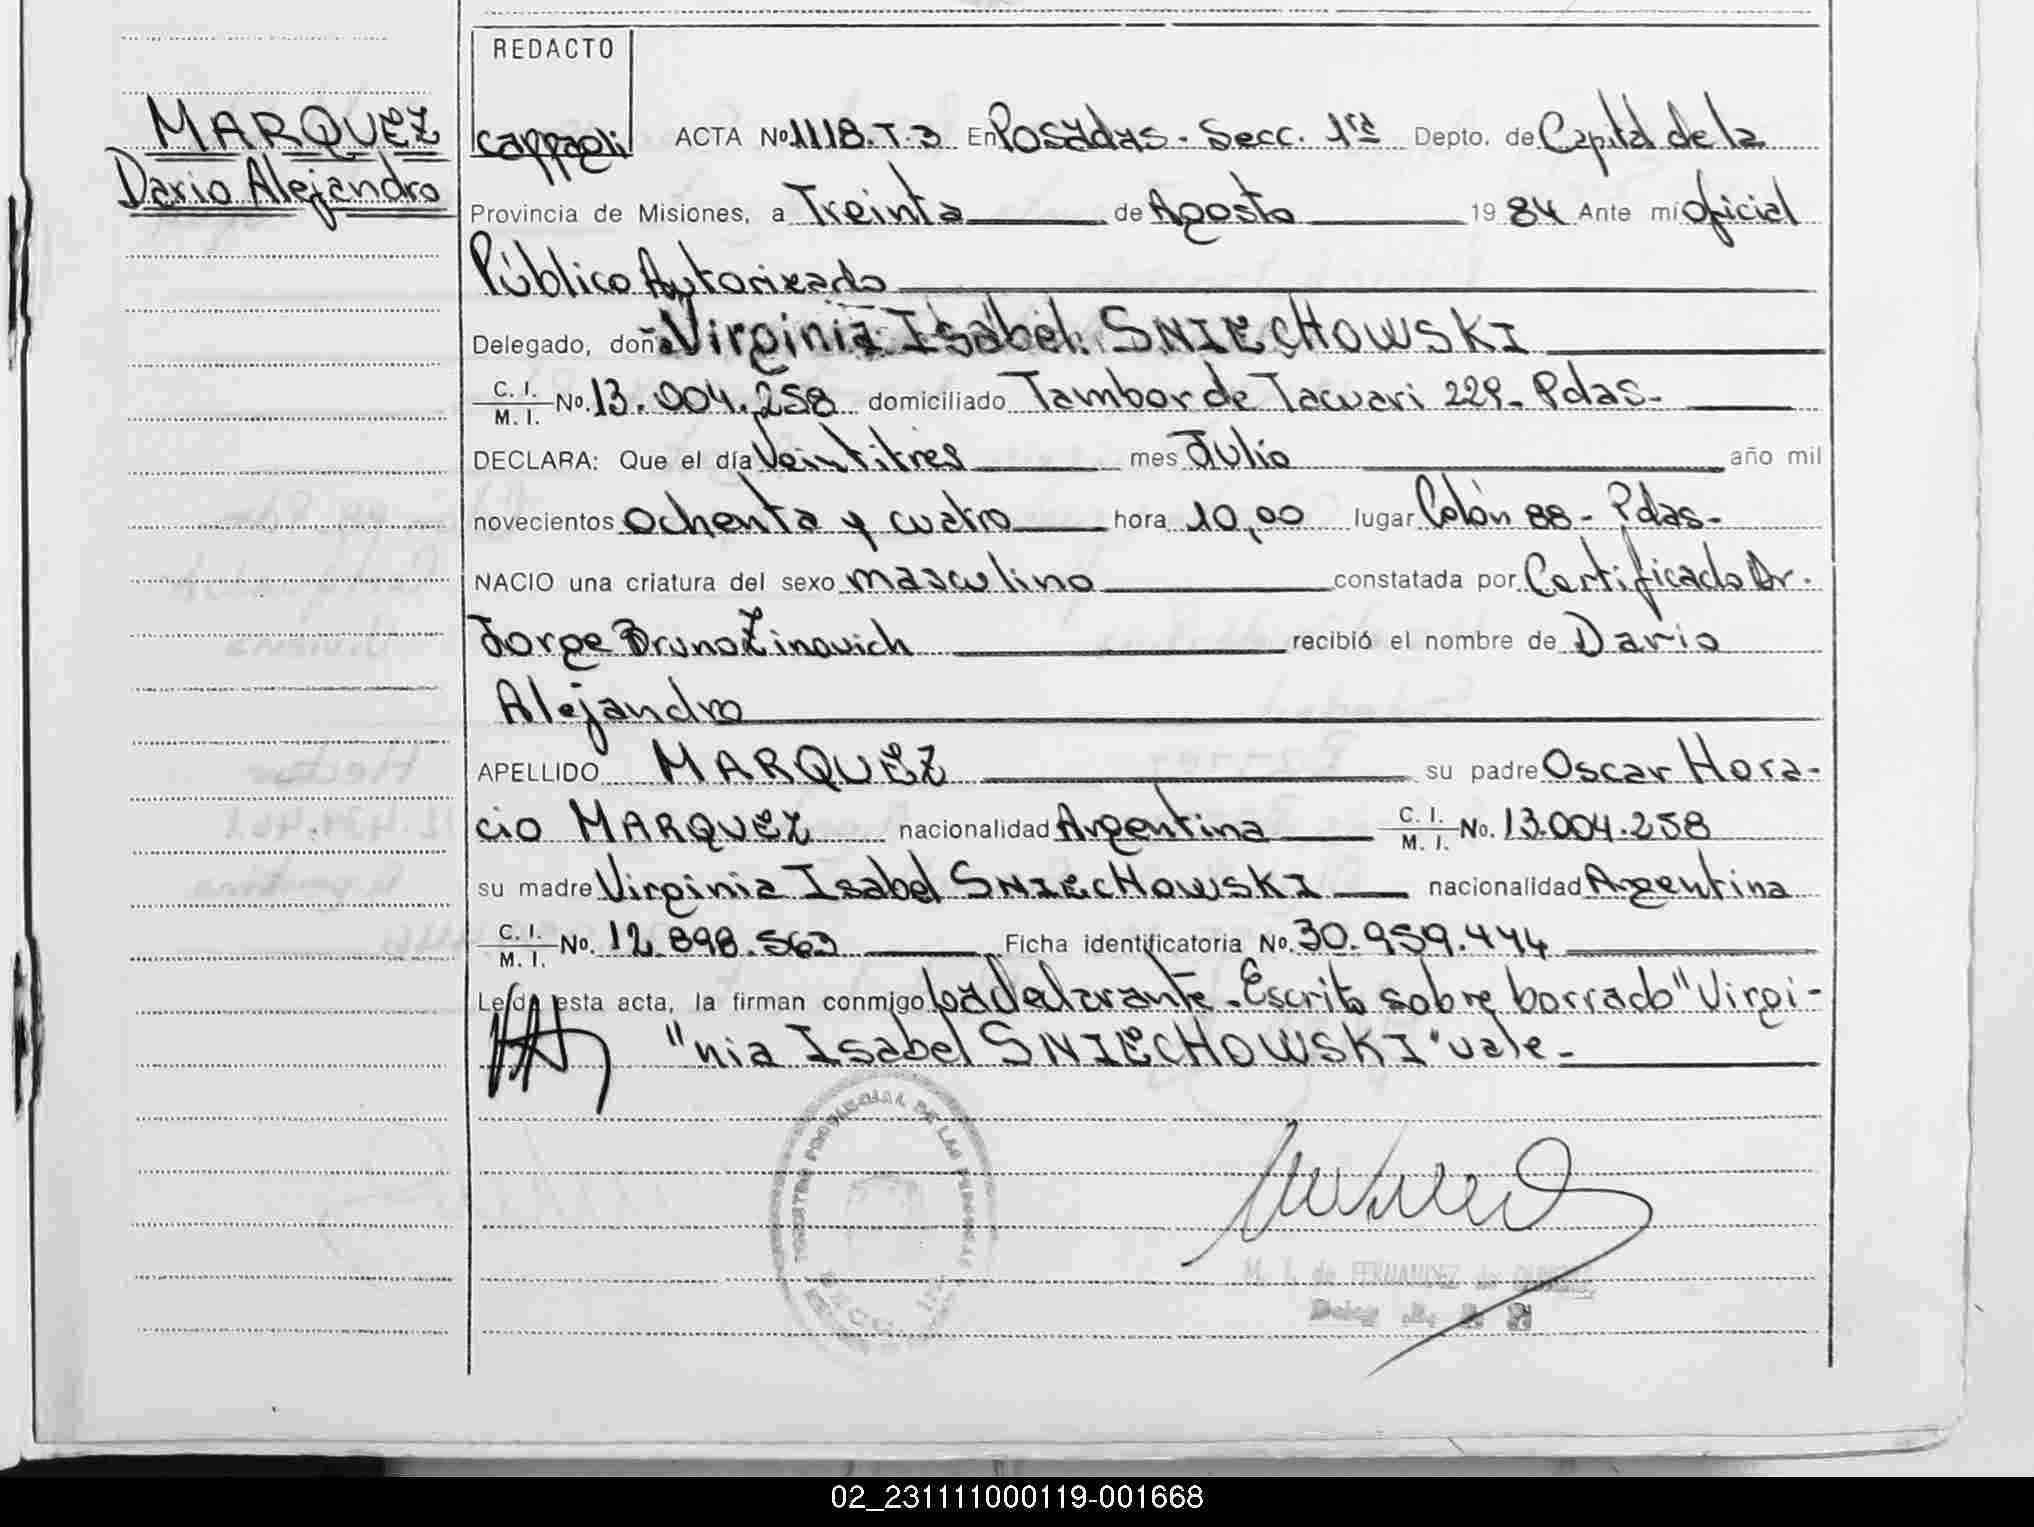 REDACTO
MARQUEZ
Dario Alejandro
cappagli ACTA Nº 1118.T.3 En Posadas. Secc. 1ra Depto. de Capital de la
Provincia de Misiones, a Treinta de Agosto 1984 Ante mí oficial
Público Autorizado
Delegado, doña Virginia Isabel SNIECHOWSKI
C. I. / M. I. No. 13.004.258 domiciliado Tambor de Tacuari 229- Pdas-
DECLARA: Que el día Veintitrés mes Julio año mil
novecientos ochenta y cuatro hora 10,00 lugar Colón 88- Pdas-
NACIO una criatura del sexo masculino constatada por Certificado Dr.
Jorge Bruno Zinovich recibió el nombre de Dario
Alejandro
APELLIDO MARQUEZ su padre Oscar Hora-
cio MARQUEZ nacionalidad Argentina C. I. / M. I. No. 13.004.258
su madre Virginia Isabel SNIECHOWSKI nacionalidad Argentina
C. I. / M. I. No. 12.898.563 Ficha identificatoria No. 30.959.444
Leída esta acta, la firman conmigo la declarante. Escrito sobre borrado "Virgi-
"nia Isabel SNIECHOWSKI" vale-
M. I. de FERNANDEZ de
02_231111000119-001668